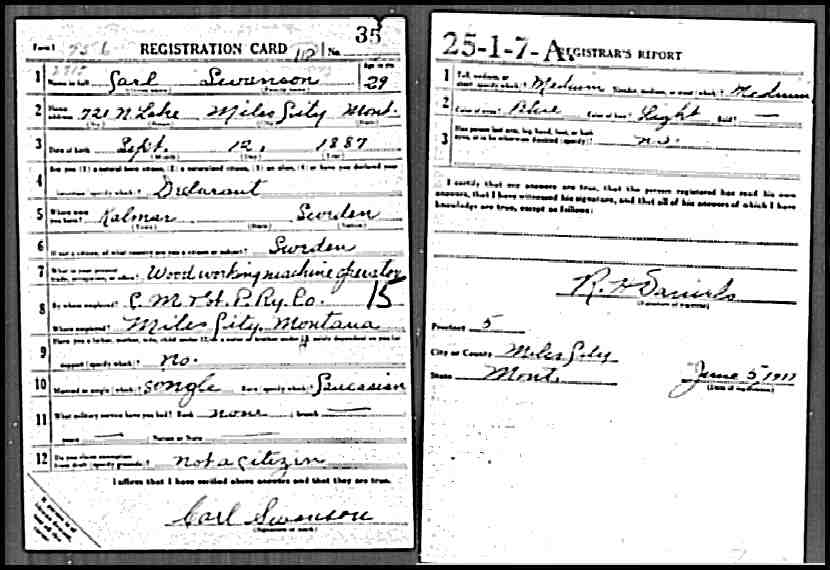 35
Form 1 REGISTRATION CARD No.
Age in yrs
1 Name in full Carl Swanson 29
(Given name) (Family name)
2 Home address 721 N Lake Miles City Mont.
(No.) (Street) (City) (State)
3 Date of birth Sept. 12, 1887
(Month) (Day) (Year)
4 Are you (1) a natural-born citizen, (2) a naturalized citizen, (3) an alien, (4) or have you declared your
intention (specify which)? Declarant
5 Where were you born? Kalmar Sweden
(Town) (State) (Nation)
6 If not a citizen, of what country are you a citizen or subject? Sweden
7 What is your present trade, occupation, or office? Wood working machine operator
8 By whom employed? C. M. & St. P. Ry. Co. 15
Where employed? Miles City, Montana
9 Have you a father, mother, wife, child under 12, or a sister or brother under 12, solely dependent on you for
support (specify which)? no.
10 Married or single (which)? Songle Race (specify which)? Caucasian
11 What military service have you had? Rank none branch —
years — Nation or State —
12 Do you claim exemption from draft (specify grounds)? not a citizin
I affirm that I have verified above answers and that they are true.
Carl Swanson
(Signature or mark)
25-1-7-A. REGISTRAR'S REPORT
1 Tall, medium, or short (specify which)? Medium Slender, medium, or stout (which)? Medium
2 Color of eyes? Blue Color of hair? Light Bald? —
3 Has person lost arm, leg, hand, foot, or both
eyes, or is he otherwise disabled (specify)? no.
I certify that my answers are true, that the person registered has read his own
answers, that I have witnessed his signature, and that all of his answers of which I have
knowledge are true, except as follows:
R. H Daniels
(Signature of registrar)
Precinct 5
City or County Miles City
State Mont. June 5, 1917
(Date of registration)